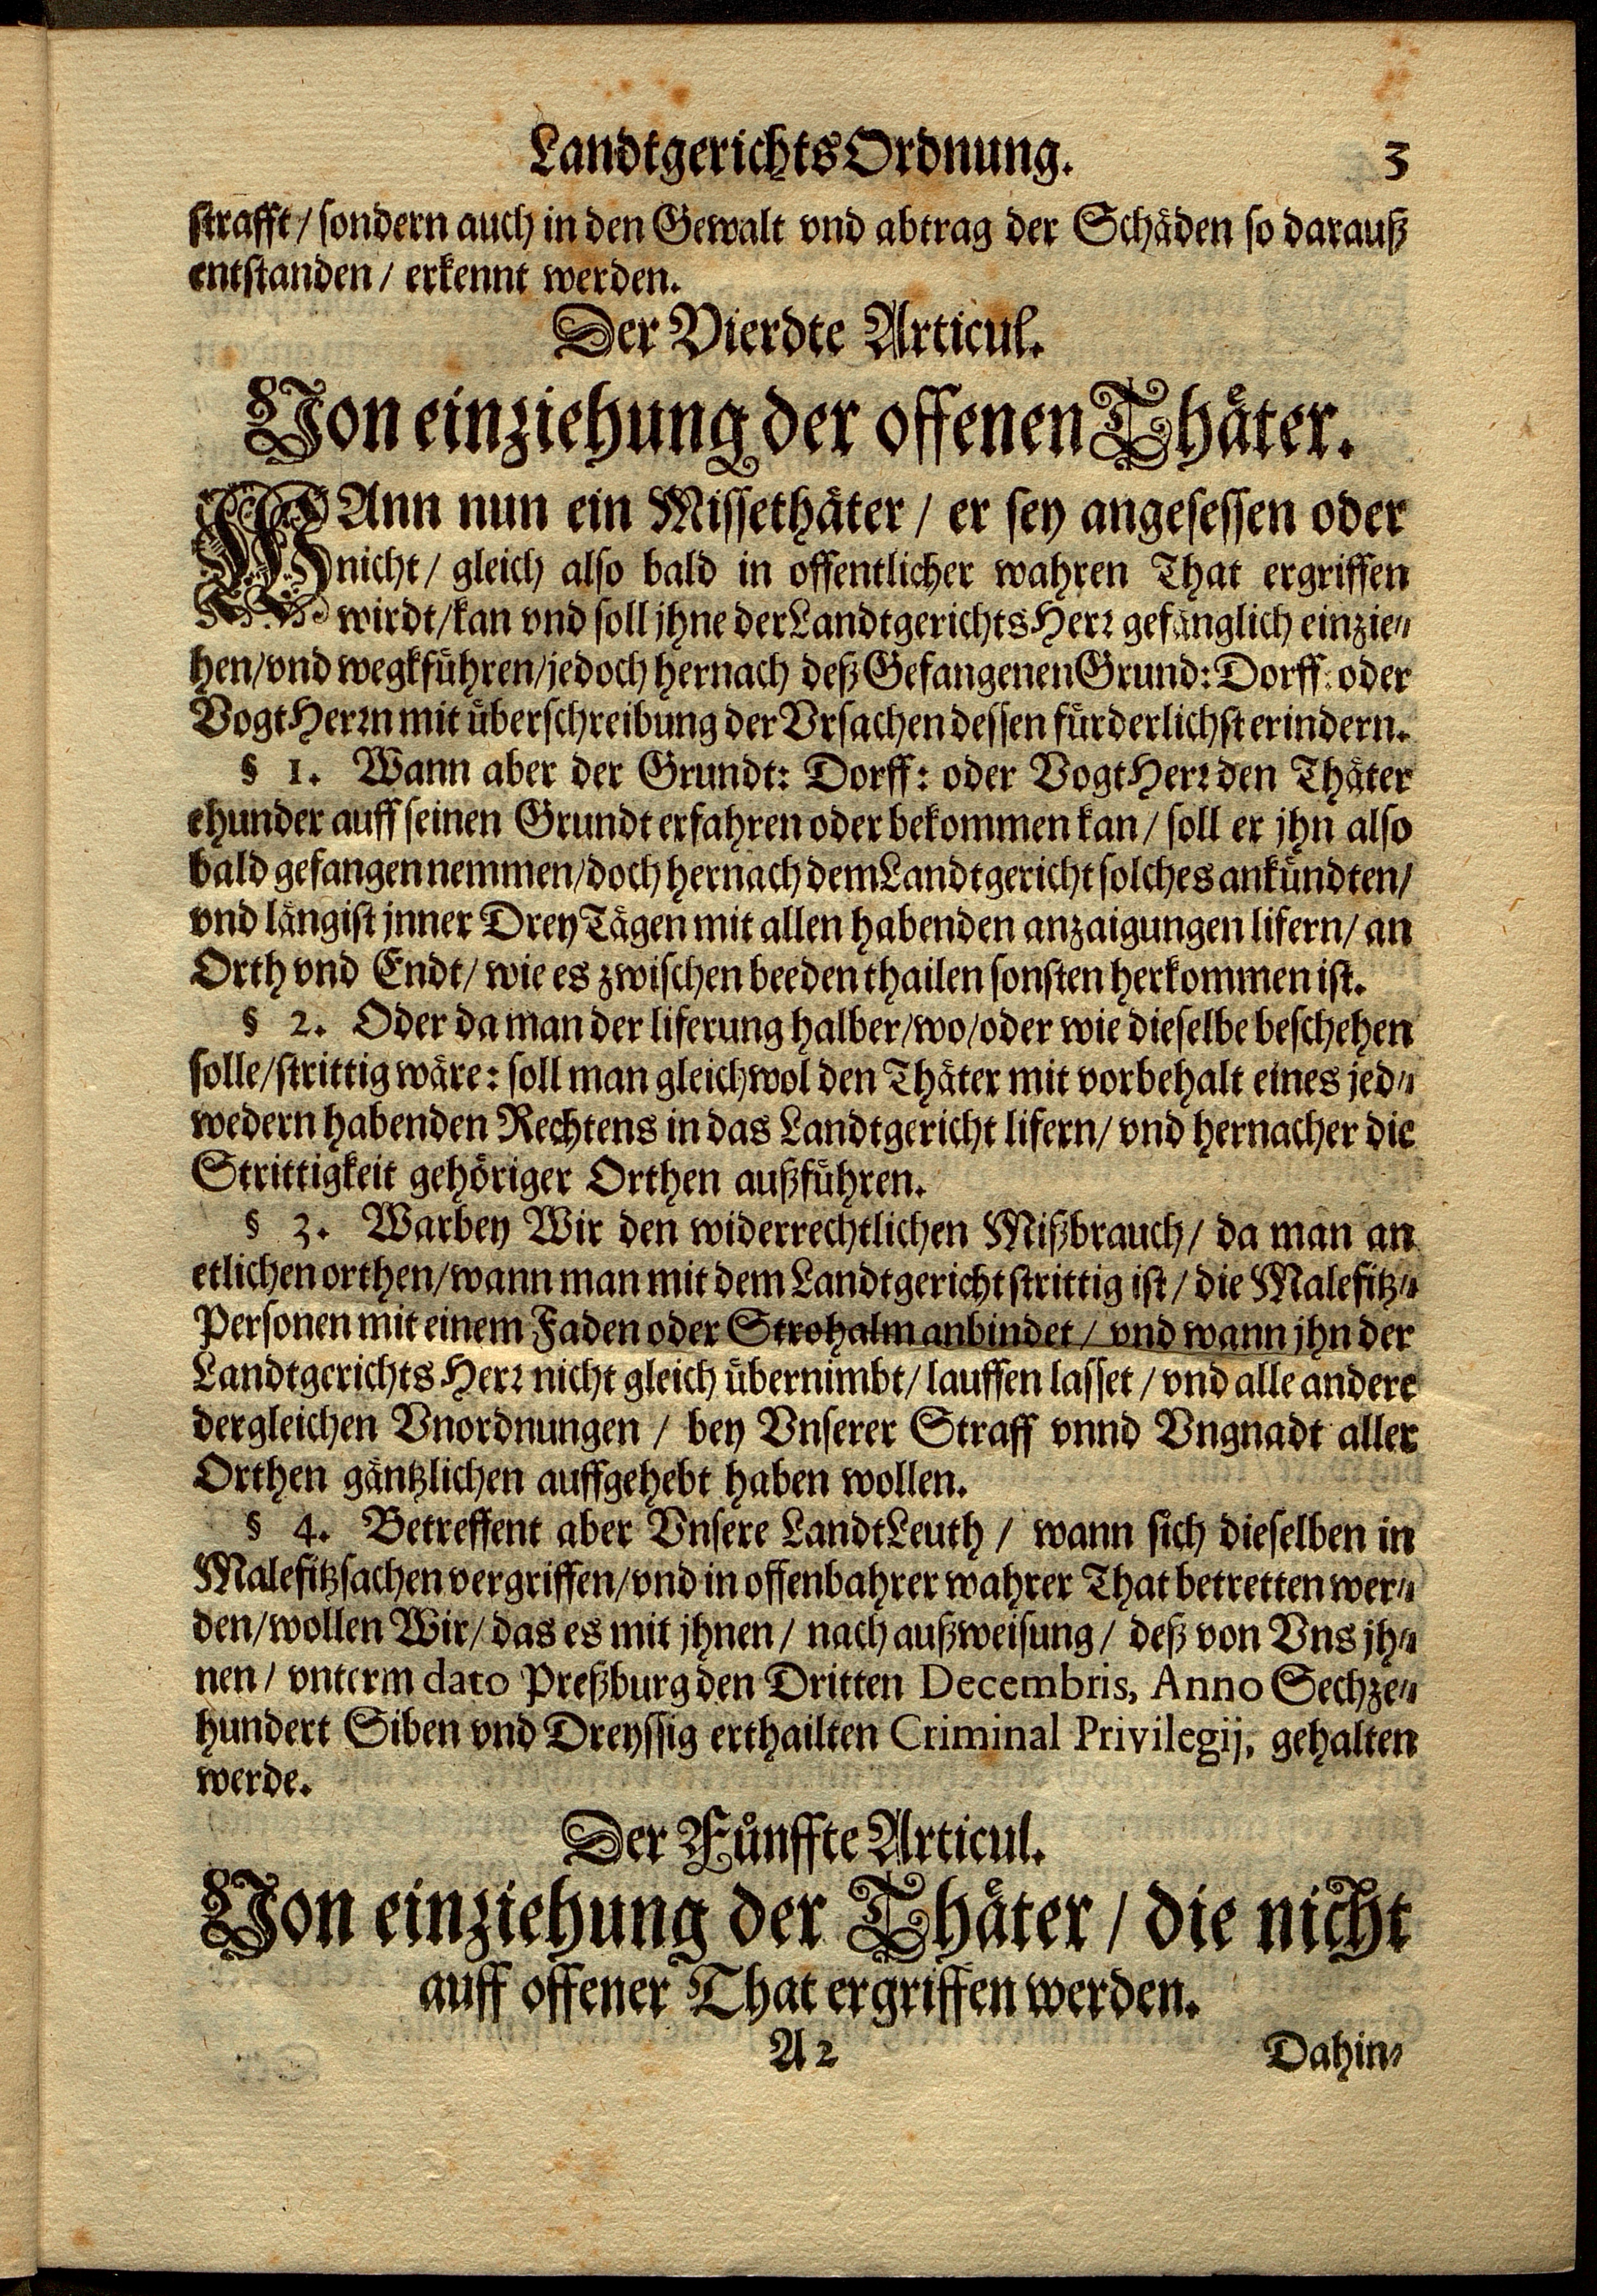 LandtgerichtsOrdnung. 3
strafft / sondern auch in den Gewalt vnd abtrag der Schäden so darauß
entstanden / erkennt werden.
Der Vierdte Articul.
Von einziehung der offenen Thäter.
WAnn nun ein Missethäter / er sey angesessen oder
nicht / gleich also bald in offentlicher wahren That ergriffen
wirdt / kan vnd soll jhne der LandtgerichtsHerr gefänglich einzie-
hen / vnd wegkführen / jedoch hernach deß Gefangenen Grund: Dorff: oder
VogtHerrn mit überschreibung der Vrsachen dessen fürderlichst erindern.
§ 1. Wann aber der Grundt: Dorff: oder VogtHerr den Thäter
ehunder auff seinen Grundt erfahren oder bekommen kan / soll er jhn also
bald gefangen nemmen / doch hernach dem Landtgericht solches ankündten /
vnd längist jnner Drey Tägen mit allen habenden anzaigungen lifern / an
Orth vnd Endt / wie es zwischen beeden thailen sonsten herkommen ist.
§ 2. Oder da man der liferung halber / wo / oder wie dieselbe beschehen
solle / strittig wäre: soll man gleichwol den Thäter mit vorbehalt eines jed-
wedern habenden Rechtens in das Landtgericht lifern / vnd hernacher die
Strittigkeit gehöriger Orthen außführen.
§ 3. Warbey Wir den widerrechtlichen Mißbrauch / da man an
etlichen orthen / wann man mit dem Landtgericht strittig ist / die Malefitz-
Personen mit einem Faden oder Strohalm anbindet / vnd wann jhn der
Landtgerichts Herr nicht gleich übernimbt / lauffen lasset / vnd alle andere
dergleichen Vnordnungen / bey Vnserer Straff vnnd Vngnadt aller
Orthen gäntzlichen auffgehebt haben wollen.
§ 4. Betreffent aber Vnsere LandtLeuth / wann sich dieselben in
Malefitzsachen vergriffen / vnd in offenbahrer wahrer That betretten wer-
den / wollen Wir / das es mit jhnen / nach außweisung / deß von Vns jh-
nen / vnterm dato Preßburg den Dritten Decembris, Anno Sechze-
hundert Siben vnd Dreyssig erthailten Criminal Privilegij, gehalten
werde.
Der Fünffte Articul.
Von einziehung der Thäter / die nicht
auff offener That ergriffen werden.
A 2 Dahin-